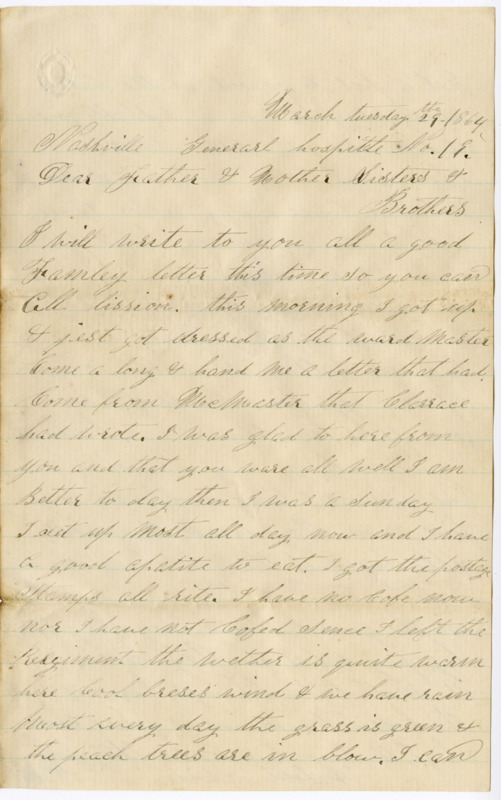 March tuesday the 29-1864
Nashville Generarl hospitle No. 19.
Dear Father & Mother Sisters &
Brothers
I will write to you all a good
Famley letter this time so you can
All lission. this morning I got up
& jest got dressed as the ward Master
Come a long & hand me a letter that had
Come from MacMaster that Clarrace
had wrote. I was glad to here from
you and that you ware all well I am
Better to day then I was a sunday
I set up Most all day now and I have
a good apatite to eat. I got the postage
stamps all rite. I have no Cofe now
nor I have not Cofed sence I left the
Regiment the wether is quite warm
here Cool breses wind & we have rain
Most every day the grass is green &
the peach trees are in blow. I can